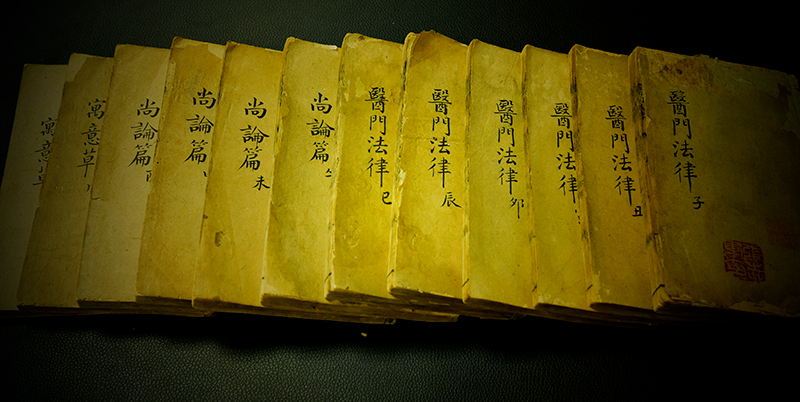 醫門法律 子
醫門法律 丑
醫門法律
醫門法律 卯
醫門法律 辰
醫門法律 巳
尚論篇
尚論篇 未
尚論篇
尚論篇 酉
寓意草
寓意草